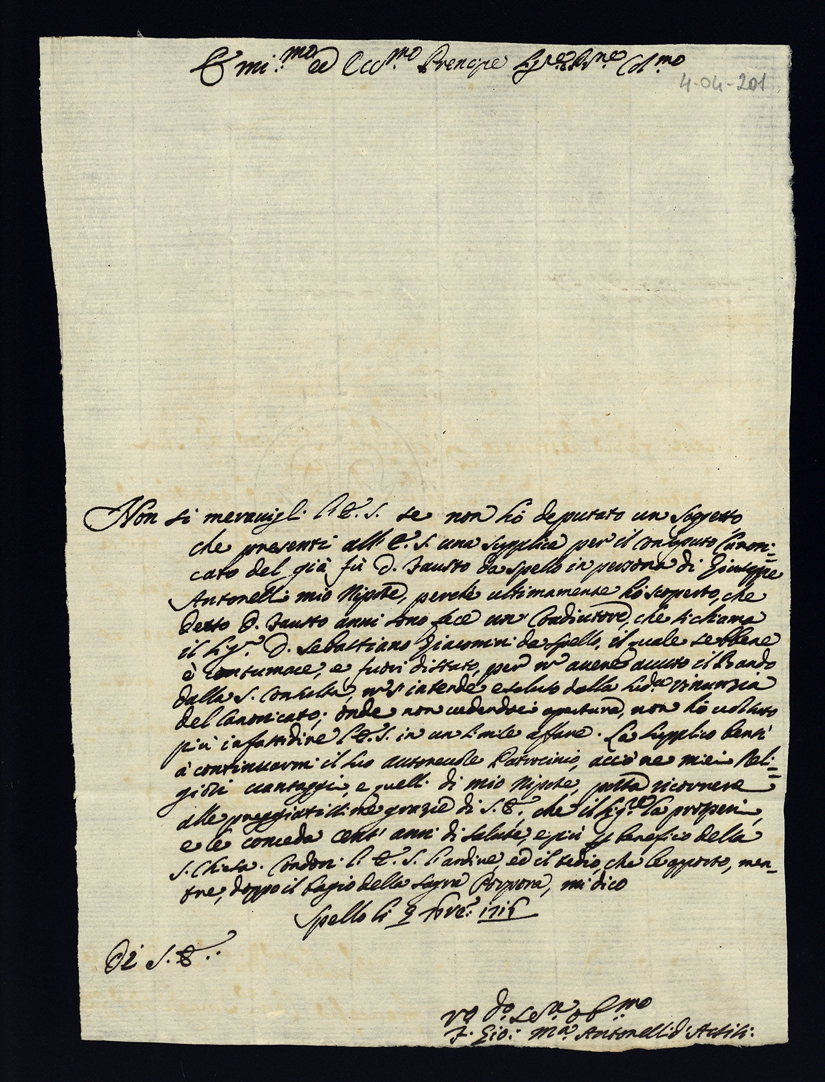 Emi:mo ed Ecc:mo Prencipe Sig:re P:ne Col:mo
4-04-201
Non si meravigli l'E.S. se non hò deputato un Soggetto
che presenti all'E.S. una supplica per il Canoni=
cato del già fù D. Fausto da Spello in persona di Giuseppe
Antonelli mio Nipote, perche ultimamente hò scoperto, che
detto D. Fausto anni sono fece un Coadiutore, che si chiama
il Sig:r D. Sebastiano Giacomini da Spello, il quale se bene
è contumace, e fuori di stato, per avere avuto il Bando
dalla S. Consulta, s'intende escluso dalla rinunzia
del Canonicato; onde non vedendoci apertura, non hò voluto
più infastidire l'E.S. in un simile affare. La supplico bensi
à continuarmi il suo autorevole Patrocinio, acciò ne miei Reli=
giosi vantaggi, e quelli di mio Nipote, possa ricorrere
alle preggiatissime grazie di S.E., che il Sig:re la prosperi,
e le conceda cent'anni di salute, e più per benefizio della
S. Chiesa. Condoni l'E.S. l'ardire ed il tedio, che le apporto, men=
tre, doppo il bagio della Sagra Porpora, mi dico
Spello li 9 1715
Di S.E.:
F. Gio: Ma Antonelli